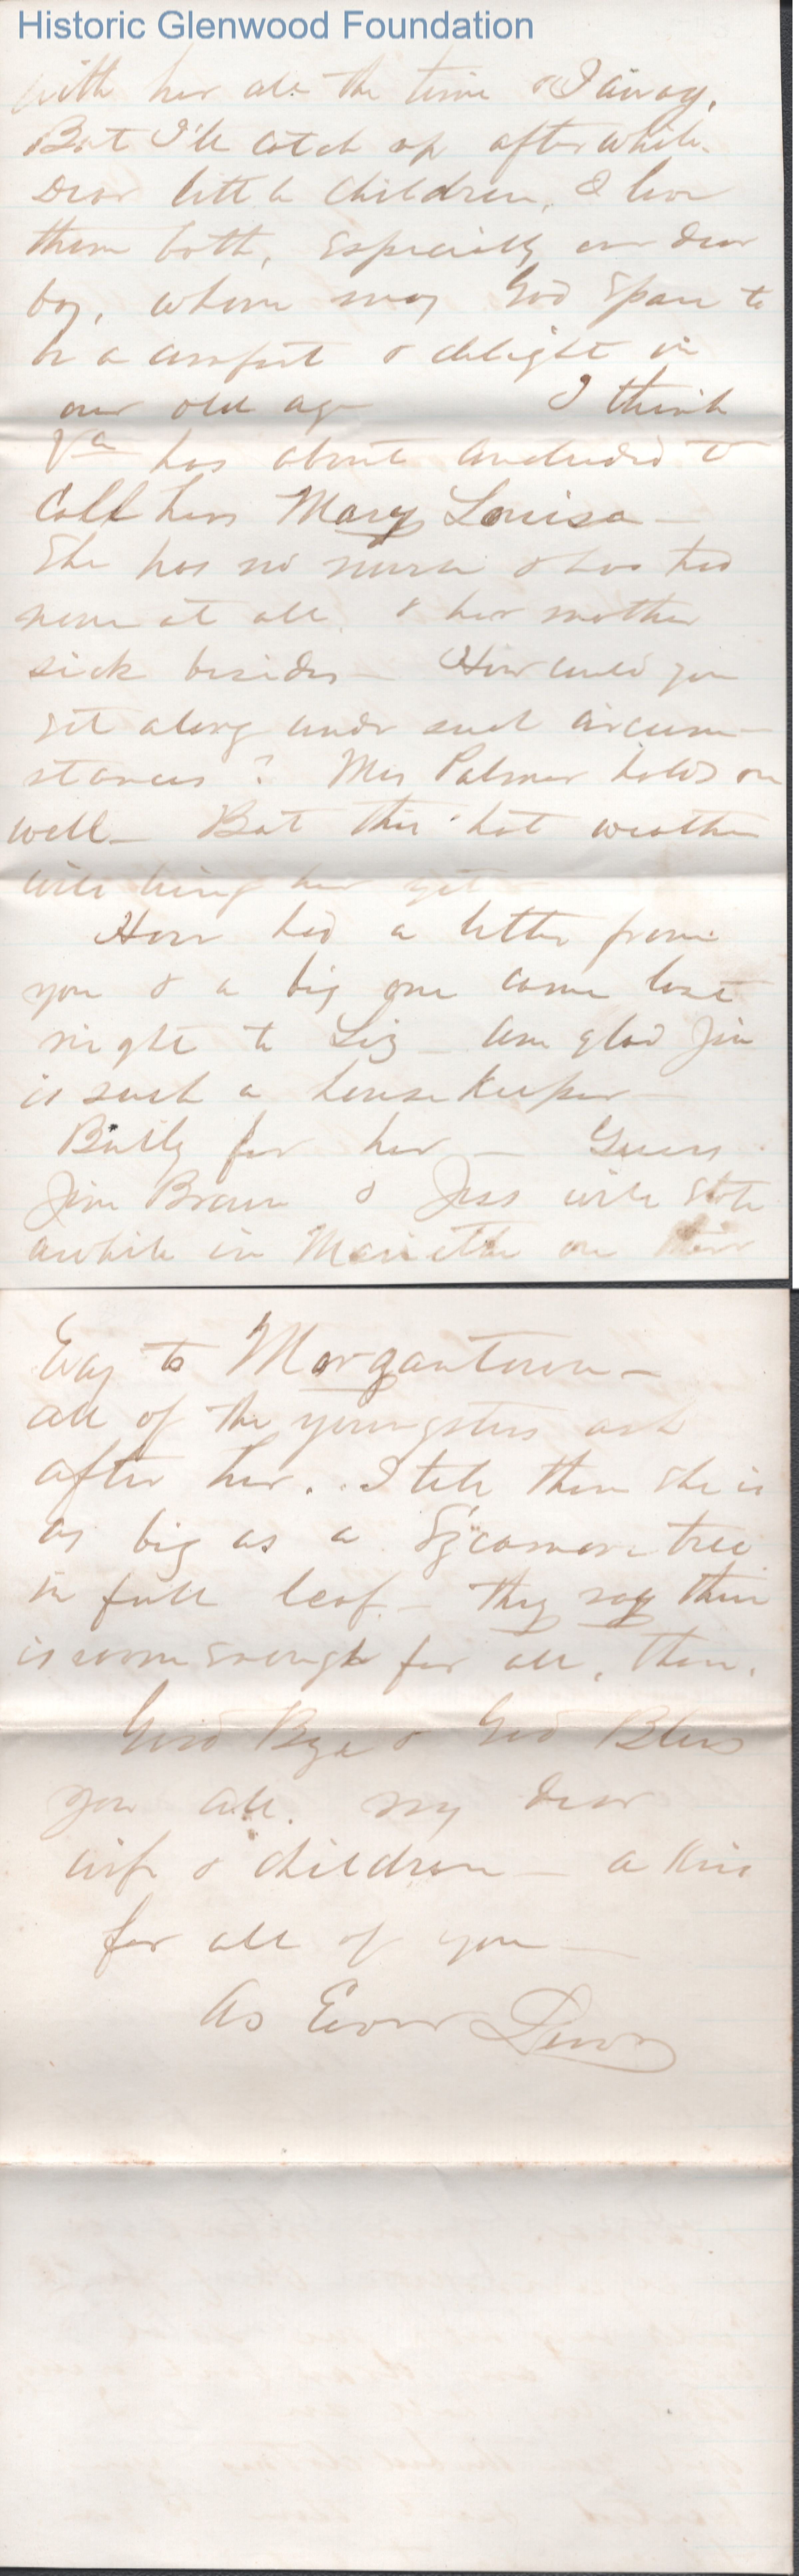 Historic Glenwood Foundation
with her all the time & I away.
But I'll catch up after while.
Dear little children, I love
them both, Especially our dear
boy, whom may God Spare to
be a comfort & delight in
our old age I think
Va has about concluded to
Call hers Mary Louisa —
She has no nurse & has had
none at all, & her mother
sick besides — How could you
get along under such circum-
stances ? Mrs Palmer holds on
well — But this hot weather
will bring her yet
Have had a letter from
you & a big one came last
night to Liz — am glad Jin
is such a housekeeper —
Bully for her — Guess
Jim Brown & Jess will stop
awhile in Marietta on their
way to Morgantown —
all of the youngsters ask
after her. I tell them she is
as big as a Sycamore tree
in full leaf — They say there
is room enough for all, then.
Good Bye & God Bless
you all. my dear
wife & children — a kiss
for all of you —
As Ever